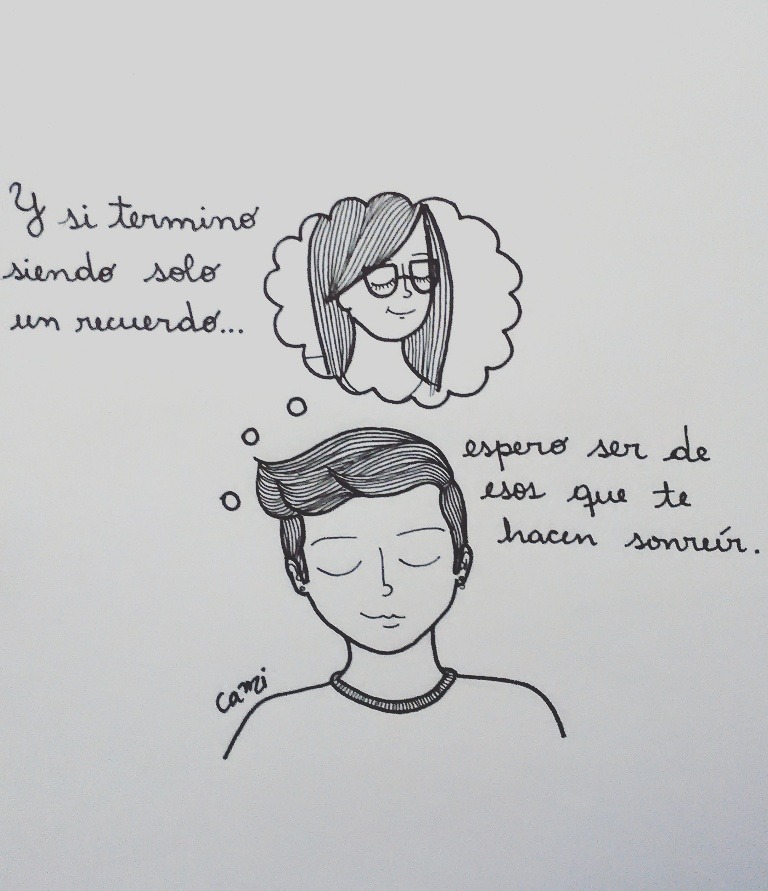 Y si termino
siendo solo
un recuerdo...
espero ser de
esos que te
hacen sonreír.
cami